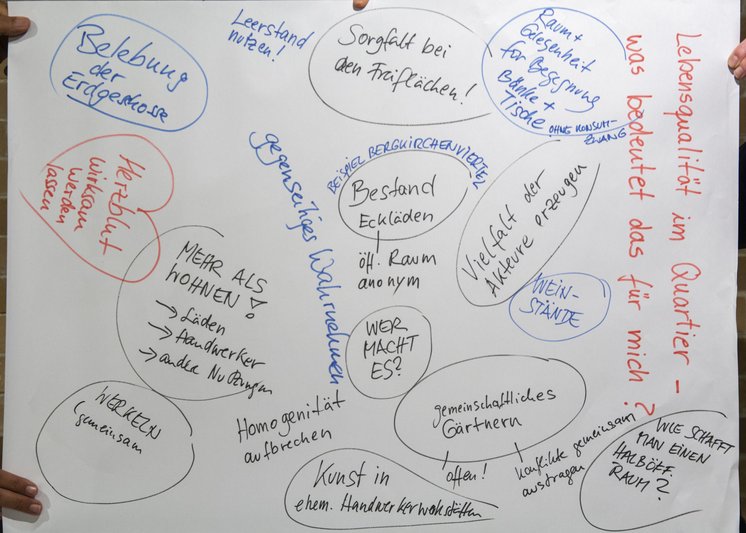 Lebensqualität im Quartier –
was bedeutet das für mich?
Belebung
der
Erdgeschosse
Leerstand
nutzen!
Sorgfalt bei
den Freiflächen!
Raum +
Gelegenheit
für Begegnung
Bänke +
Tische OHNE KONSUM-
ZWANG
Herzblut
wirksam
werden
lassen
gegenseitiges Wahrnehmen
BEISPIEL BERGKIRCHENVIERTEL
Bestand
Eckläden
öff. Raum
anonym
Vielfalt der
Akteure erzeugen
WEIN-
STÄNDE
MEHR ALS
WOHNEN!
→ Läden
→ Handwerker
→ andere Nutzungen
WER
MACHT
ES?
WERKELN
gemeinsam
Homogenität
aufbrechen
gemeinschaftliches
Gärtnern
offen!
Konflikte gemeinsam
austragen
Kunst in
ehem. Handwerkerwerkstätten
WIE SCHAFFT
MAN EINEN
HALBÖFF.
RAUM?